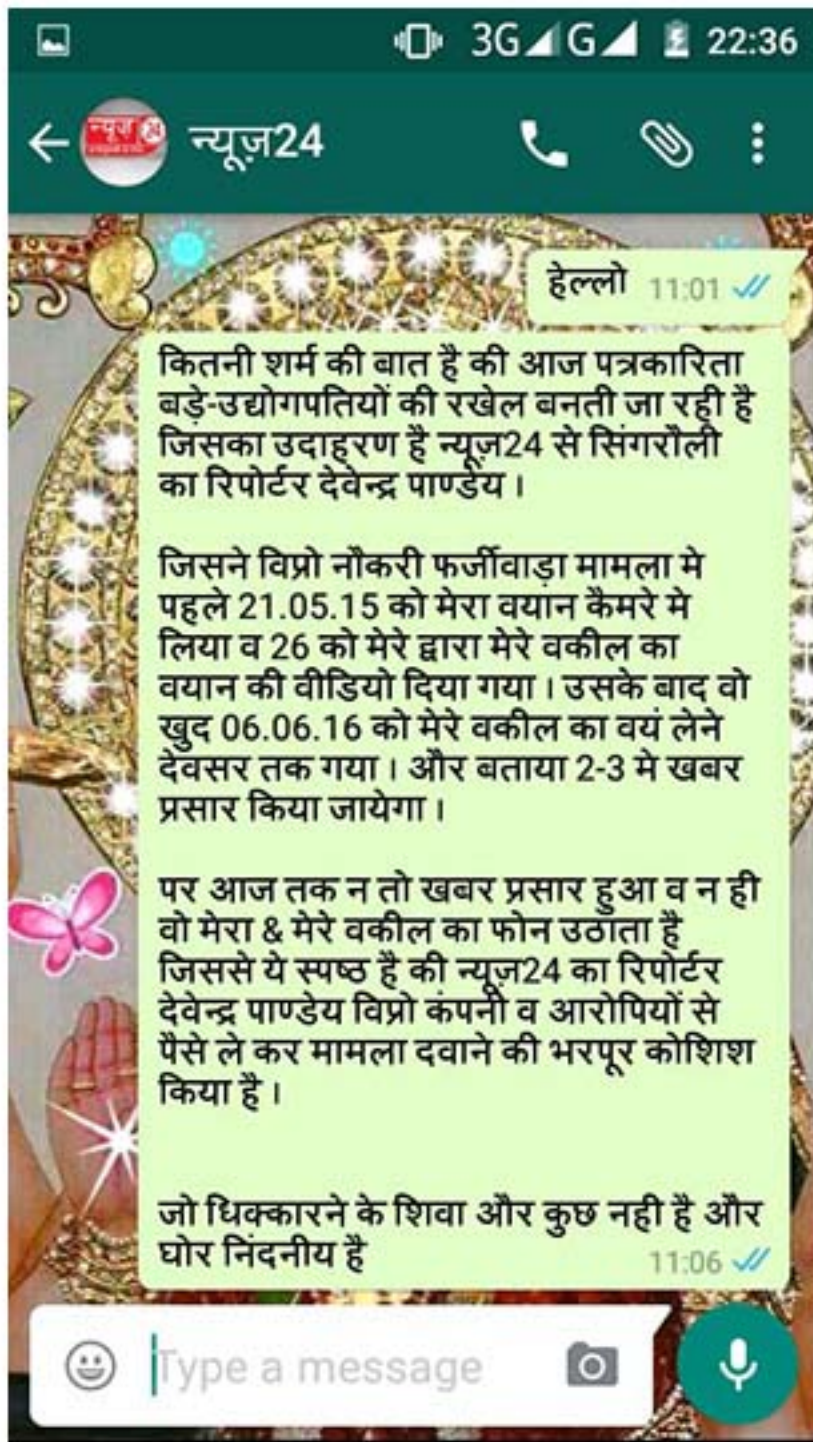 3G G 22:36
न्यूज़24
हेल्लो 11:01
कितनी शर्म की बात है की आज पत्रकारिता
बड़े-उद्योगपतियों की रखेल बनती जा रही है
जिसका उदाहरण है न्यूज़24 से सिंगरौली
का रिपोर्टर देवेन्द्र पाण्डेय ।
जिसने विप्रो नौकरी फर्जीवाड़ा मामला मे
पहले 21.05.15 को मेरा वयान कैमरे मे
लिया व 26 को मेरे द्वारा मेरे वकील का
वयान की वीडियो दिया गया । उसके बाद वो
खुद 06.06.16 को मेरे वकील का वयं लेने
देवसर तक गया । और बताया 2-3 मे खबर
प्रसार किया जायेगा ।
पर आज तक न तो खबर प्रसार हुआ व न ही
वो मेरा & मेरे वकील का फोन उठाता है
जिससे ये स्पष्ठ है की न्यूज़24 का रिपोर्टर
देवेन्द्र पाण्डेय विप्रो कंपनी व आरोपियों से
पैसे ले कर मामला दवाने की भरपूर कोशिश
किया है ।
जो धिक्कारने के शिवा और कुछ नही है और
घोर निंदनीय है 11:06
Type a message